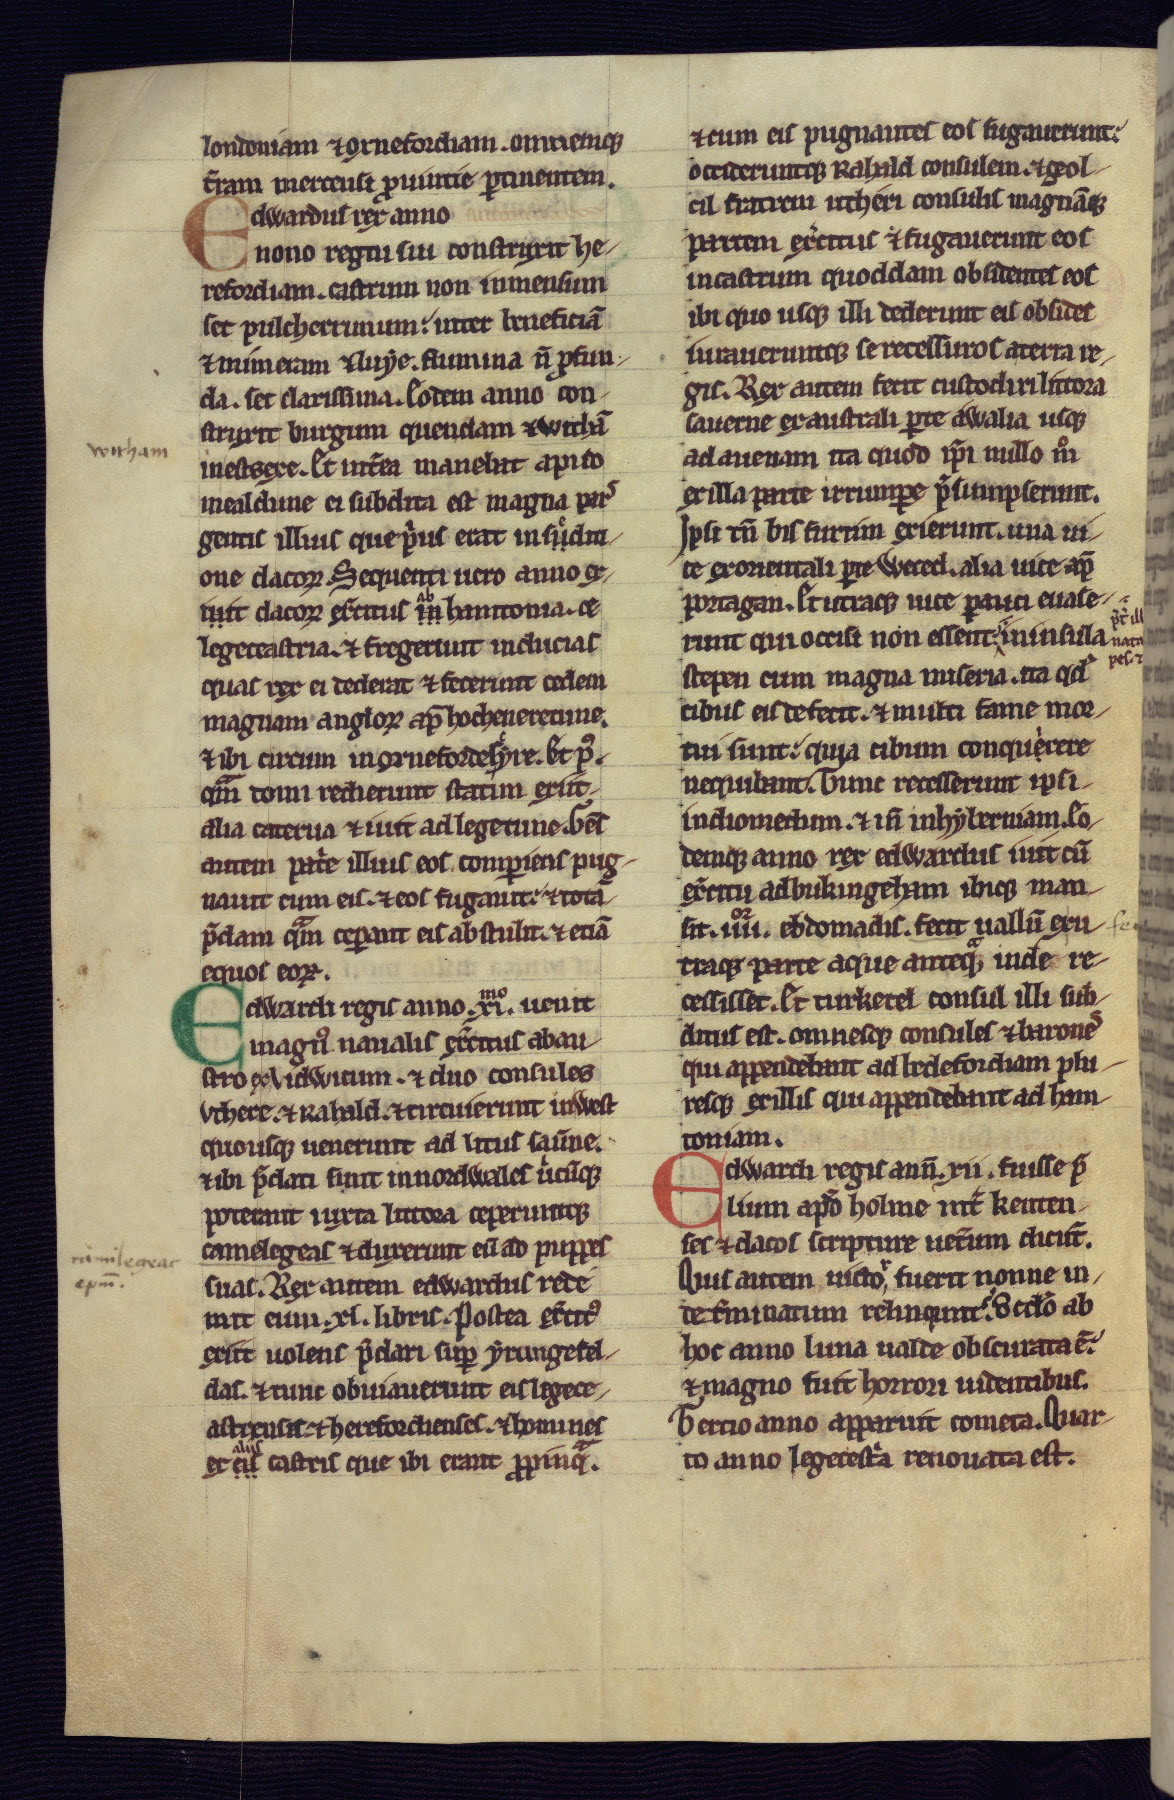 londoniam ⁊ oxnefordiam . omnemq;
t̄ram mercensi ꝓuintie ꝑtinentem.
Edwardus rex anno
nono regni sui construxit he-
refordiam . castrum non inmensum
set pulcherrimum : inter beneficiā
⁊ mimeram ⁊ luȳe . flumina n̄ ꝓfun-
da . set clarissima . Eodem anno con-
struxit burgum quendam ⁊ withā
witham
inestsexe . Et int̄ea manebat apud
mealdune ei subdita est magna pars
gentis illius que p̓us erat in subditi-
one dacoꝝ . Sequenti uero anno ex-
iuit dacoꝝ exc̄itus ab hamtonia . ⁊
legeceastria . ⁊ fregerunt inducias
quas rex ei dederat ⁊ fecerunt cedem
magnam angloꝝ ap̄ hocheneretune.
⁊ ibi circum in oxnefordesẏre . Et p̓ .
q̄m domi redierunt statim exiit
alia caterua ⁊ iuit ad legetune . Gēs
autem pat̓e illius eos comꝑiens pug-
nauit cum eis . ⁊ eos fugauit : ⁊ totā
p̄dam q̄m ceꝑant eis abstulit . ⁊ etiā
equos eoꝝ .
Edwardi regis anno . xi.mo uenit
magn̓ naualis exc̄itus ab au-
stro ex lidwitum . ⁊ duo consules
vthere . ⁊ Rahald . ⁊ circuierunt in west
quousq; uenerunt ad litus sau̅ne .
⁊ ibi p̄dati sunt in nordwales u̓cūq;
poterant iuxta littora ceperuntq;
camelegeas ⁊ duxerunt eū ad puppes
camelegeac
epm̄ .
suas . Rex autem edwardus rede
mit eum . xl . libris . Postea exc̄it̓
exiit uolens p̄dari sup̄ ẏrcingefel-
das . ⁊ tunc obuiauerunt eis legece-
astrenses . ⁊ herefordienses . ⁊ homines
ex aliis castris que ibi erant ꝓpinq̄ .
⁊ cum eis pugnantes eos fugauerunt :
occideruntq; Rahald consulem . ⁊ geol-
cil fratrem utheri consulis magnāq;
partem exc̄itus ⁊ fugauerunt eos
in castrum quoddam obsidentes eos
ibi quo usq; illi dederunt eis obsides
iuraueruntq; se recessuros a terra re-
gis . Rex autem fecit custodiri littora
sauerne ex australi ꝑte a walia usq;
ad auenam ita quod ip̄i nullo m̊
ex illa parte irrumꝑe p̄sumpserunt .
Ipsi tn̄ bis furtim exierunt . una ui-
ce ex orientali ꝑte Weced . alia uice ap̄
portagan . Et utraq; uice pauci euase-
runt qui occisi non essent : in insula
stepen cum magna miseria . ita qd̓
cibus eis defecit . ⁊ multi fame mor-
tui sunt : quia cibum conquirere
nequibant . Tunc recesserunt ipsi
in diomedum . ⁊ in̄ in hẏberniam . Eo-
demq; anno rex edwardus iuit cū
exc̄itu ad bukingeham ibiq; man-
sit . iiii.or ebdomadis . fecit uallū exu-
traq; parte aque anteq̄ inde re-
cessisset . Et turketel consul illi sub-
ditus est . omnesq; consules ⁊ barones
qui appendebant ad bedefordiam plu-
resq; ex illis qui appendebant ad ham-
toniam .
Edwardi regis ann̄ . xii . fuisse p̄
lium apd̓ holme int̄ kenten-
ses ⁊ dacos scripture uet̄um dicūt .
Quis autem uictor fuerit nonne in-
det̄minatum relinquunt : Scdō ab
hoc anno luna ualde obscurata ē :
⁊ magno fuit horrori uidentibus .
Tercio anno apparuit cometa . Quar-
to anno legecest̓a renouata est .